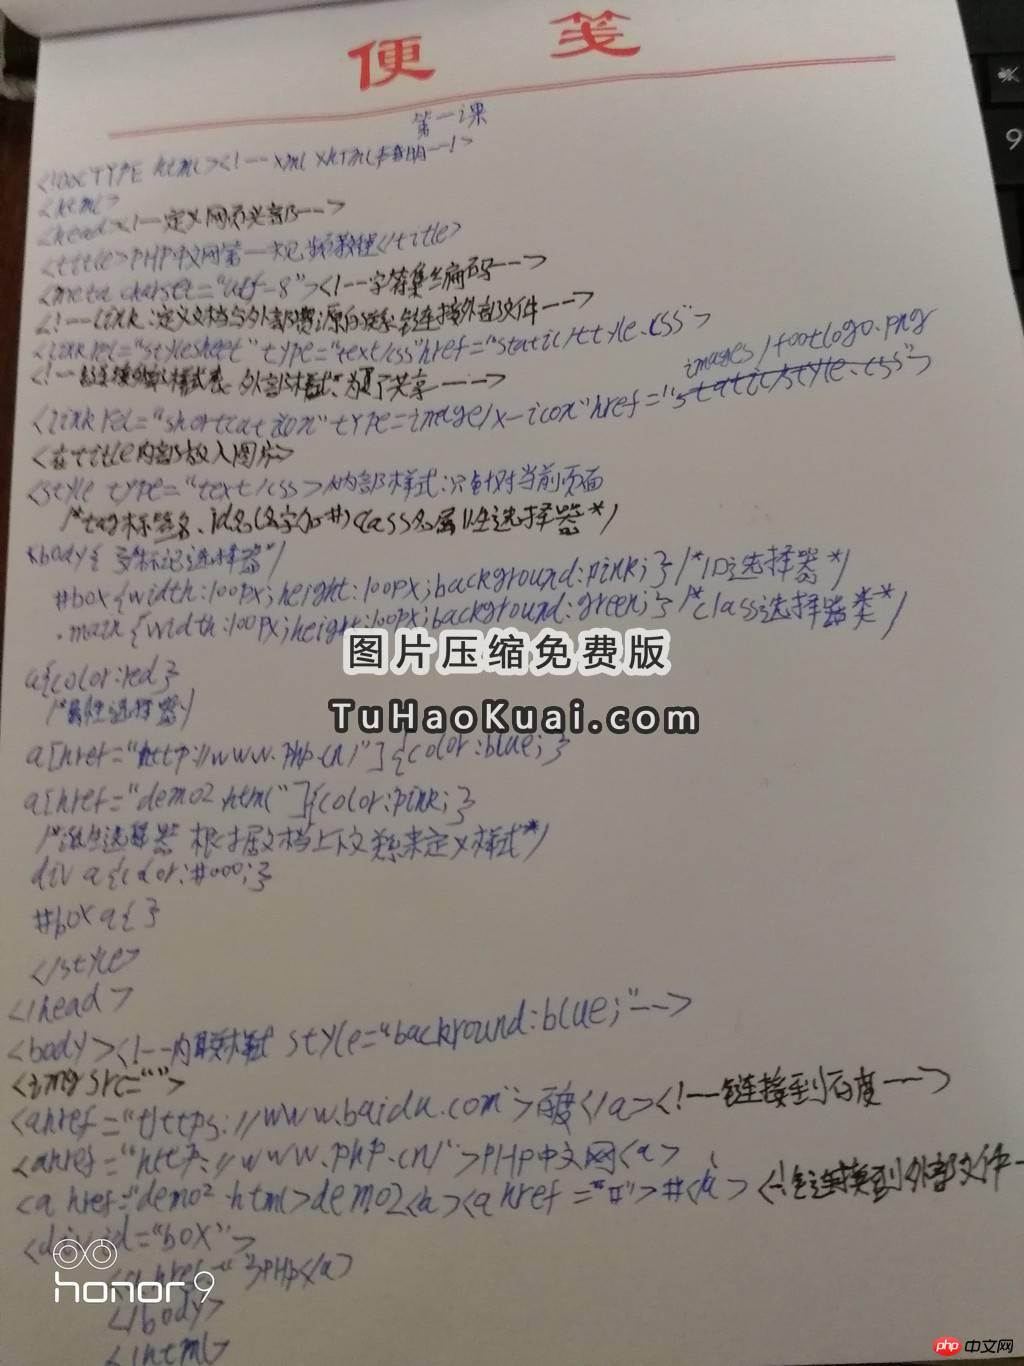 便 笺
第一课
<!DOCTYPE html><!--xml xhtml声明--!>
<html>
<head><!--定义网页头部-->
<title>PHP中文网第一次视频教程</title>
<meta charset="utf-8"><!--字符集编码-->
<!--link:定义文档与外部资源的关系链连接外部文件-->
<link rel="stylesheet" type="text/css"href="static/style.css">
images/footlogo.png
<!--链接外部样式表、外部样式、为了共享---->
<link rel="shortcut icon" type=image/x-icon"href="static/style.css">
<在title内部放入图片>
<style type="text/css>内部样式:只针对当前页面
/*tag标签名、id名(名字加#)class名属性选择器*/
body{ 标记选择器*/
#box{width:100px;height:100px;background:pink;}/*ID选择器*/
.main{width:100px;height:100px;background:green;}/*class选择器类*/
图片压缩免费版
a{color:red}
TuHaoKuai.com
/*属性选择器/
a[href="http://www.php.cn/"]{color:blue;}
a[href="demo2.html"]{color:pink;}
/*派生选择器 根据文档上下文关系来定义样式*/
div a{color:#000;}
#box a{}
</style>
</head>
<body><!--内联样式 style="backround:blue;"-->
<img src="">
<ahref="https://www.baidu.com">百度</a><!--链接到百度-->
<ahref="http://www.php.cn/">PHP中文网<a>
<a href="demo2.html>demo2<a><a href="#">#<a> <!链接到外部文件-
<div id="box">
<a href="">PHP</a>
honor 9
</body>
<html>
php 中文网
9